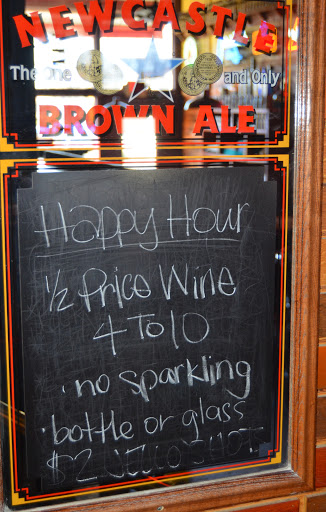 NEWCASTLE
The One and Only
BROWN ALE
Happy Hour
1/2 Price Wine
4 To 10
· no sparkling
· bottle or glass
$2 Jello SHOT